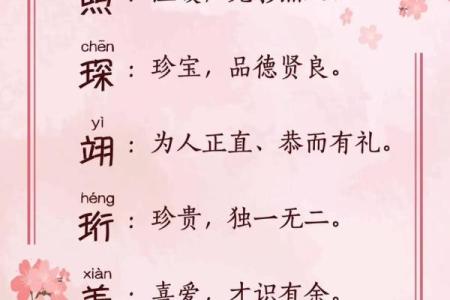 chēn
琛：珍宝，品德贤良。
yì
翊：为人正直、恭而有礼。
héng
珩：珍贵，独一无二。
xiàn
羡：喜爱，才识有余。